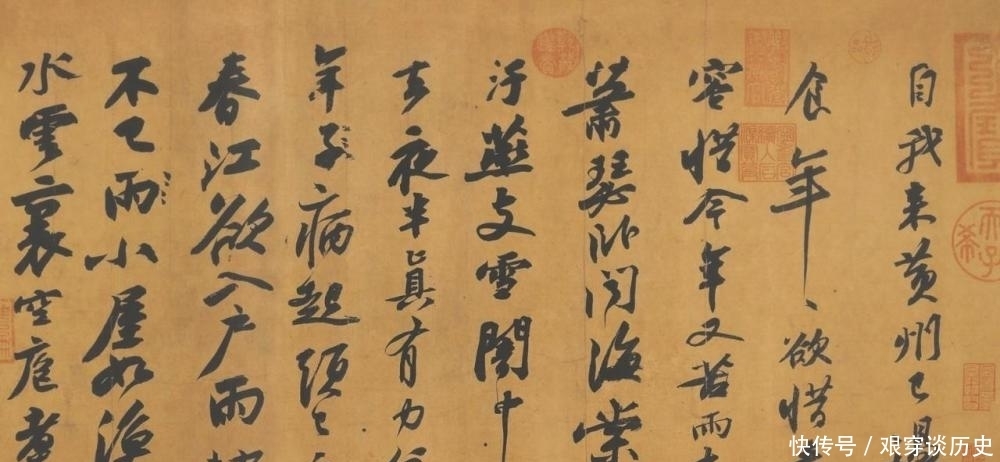 自我来黄州已
食年〻欲惜
容惜今年又苦雨
蕭瑟卧聞海棠
汙燕支雪闇中
去夜半真有力
年子病起須已
春江欲入户雨
不已雨小屋如漁
水雲裏空庖煮
快传号／艰穿谈历史